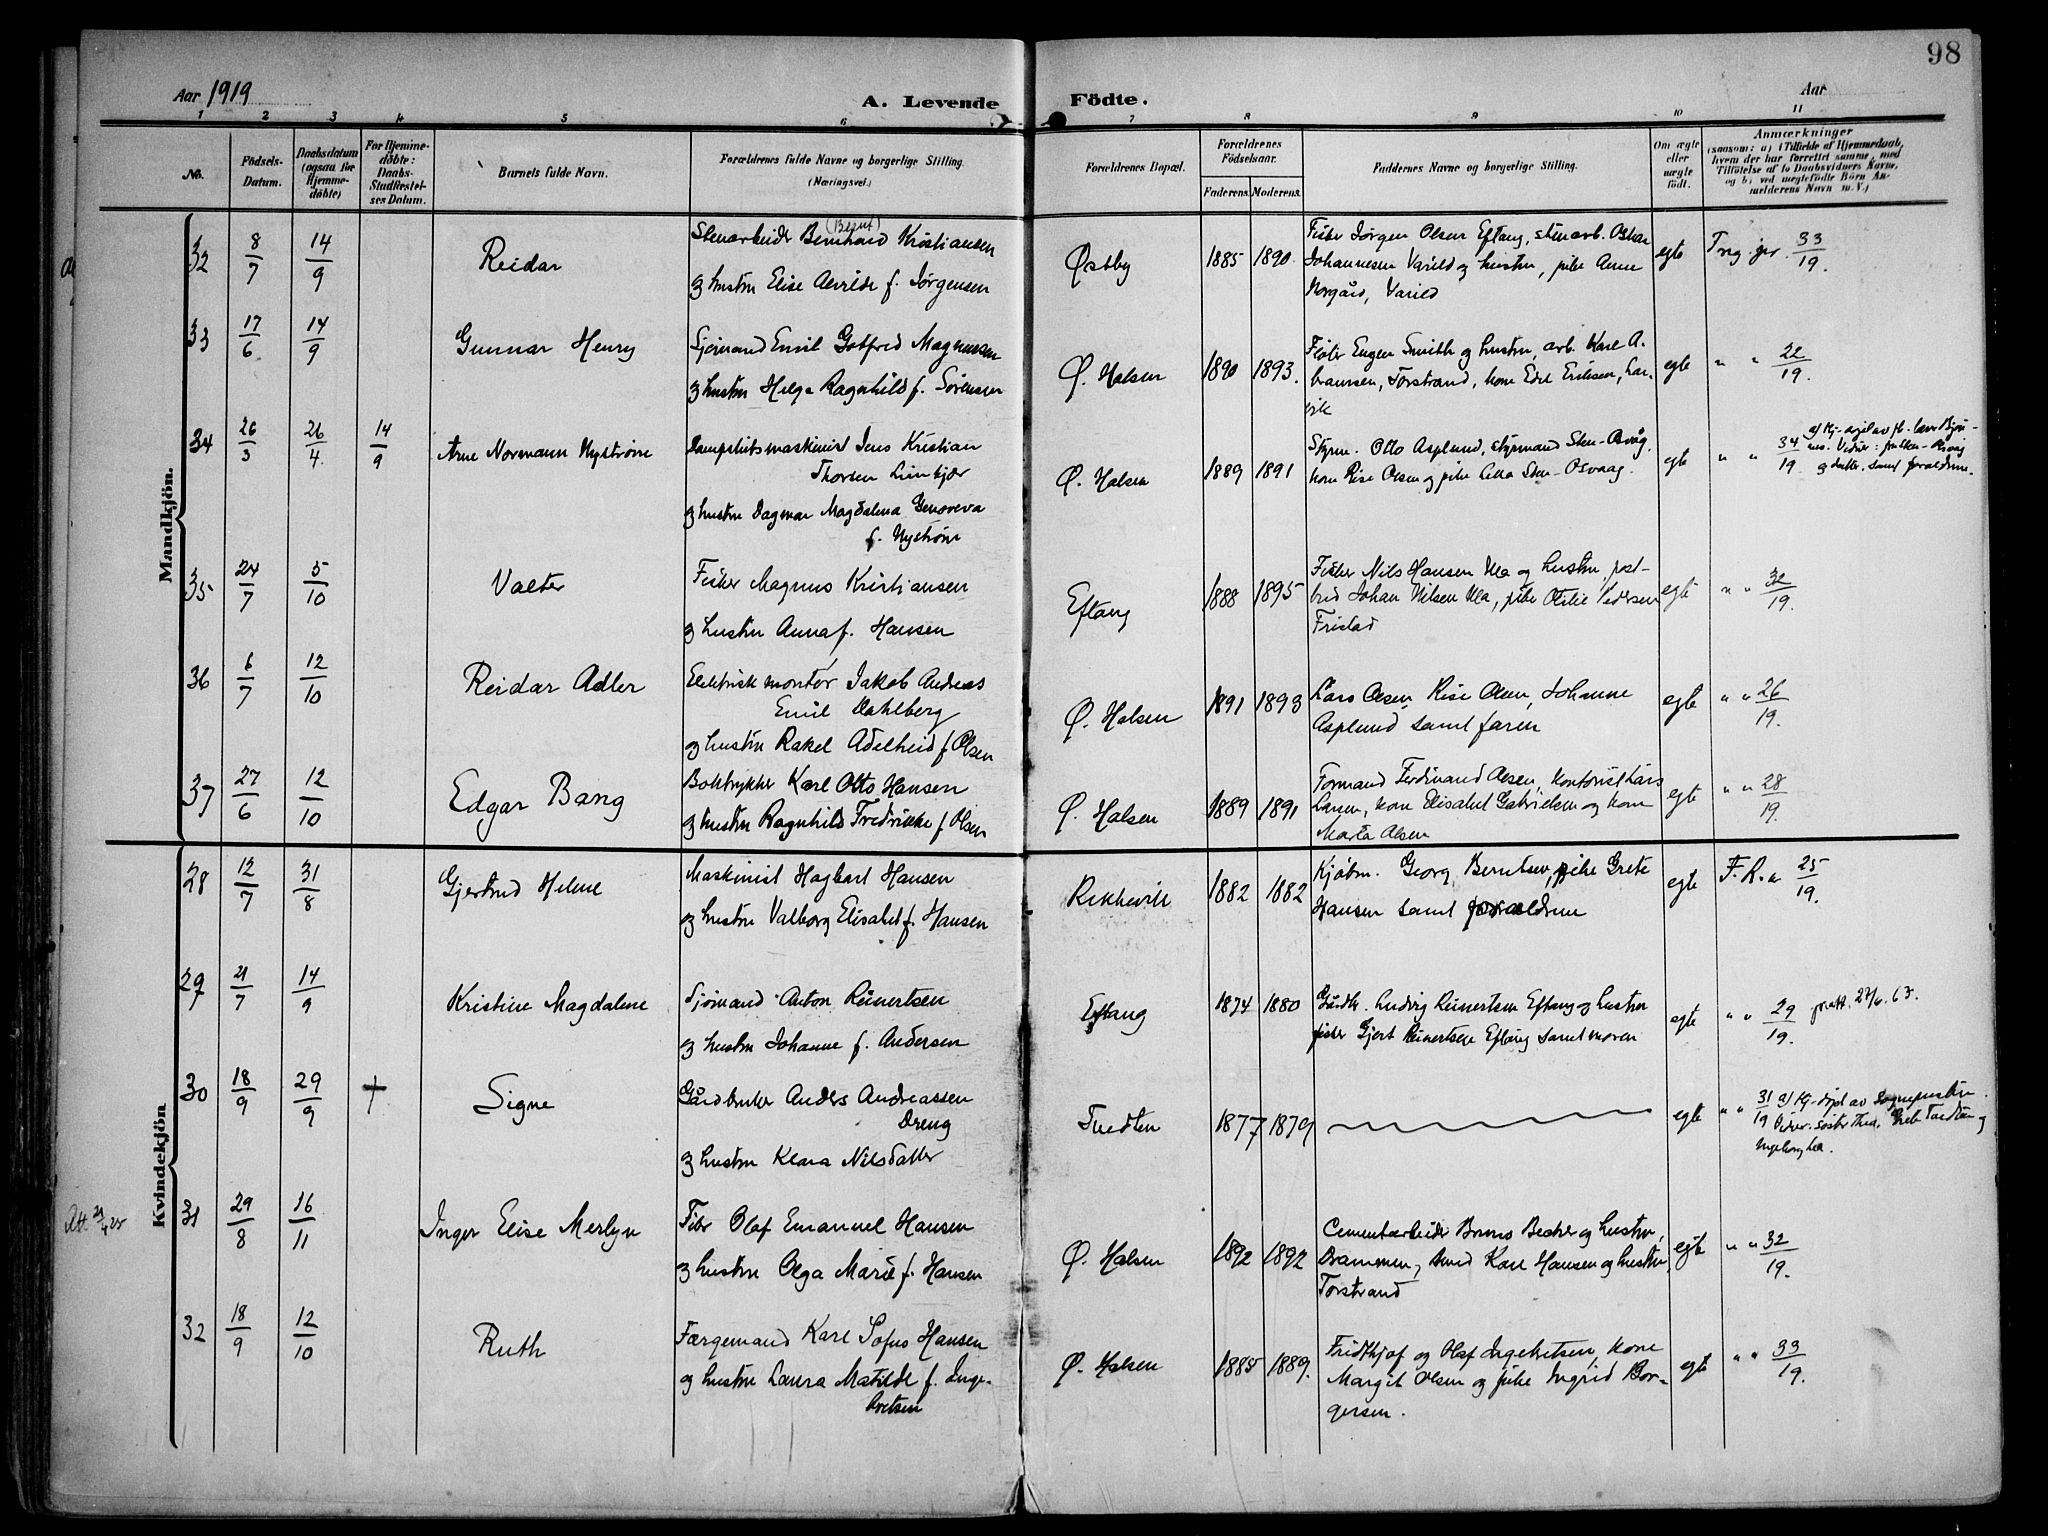 98
Aar 1919
A. Levende Födte.
Aar
1 2 3 4 5 6 7 8 9 10 11
No.
Födsels-Datum.
Daabsdatum (ogsaa for Hjemmedöbte)
For Hjemmedöbte: Daabs-Stadfæstelses Datum.
Barnets fulde Navn.
Forældrenes fulde Navne og borgerlige Stilling. (Næringsvei.)
Forældrenes Bopæl.
Forældrenes Födselsaar.
Faderens. Moderens.
Faddernes Navne og borgerlige Stilling.
Om ægte eller uægte födt.
Anmærkninger
(saasom: a) i Tilfælde af Hjemmedaab, hvem der har forrettet samme, med Tilföielse af to Daabsvidners Navne, og b) ved uægtefödte Börn Anmelderens Navn m. V.)
Mandkjön.
32 8/7 14/9 Reidar
(Bernt)
Stenarbeider Bernhard Kristiansen
og hustru Elise Alvilde f. Jørgensen
Østby 1885 1890
Fisker Jørgen Olsen Eftang, stenarb. Oskar
Johannesen Varild og hustru, pike Anne
Norgård, Varild
egte 33/19.
33 17/6 14/9 Gunnar Henry
Sjømand Emil Gotfred Magnussen
og hustru Helga Ragnhild f. Sørensen
Ø. Halsen 1890 1893.
Fisker Eugen Smith og hustru, arb. Karl A-
bramsen, Torstrand, kone Edel Eriksen, Lar-
vik
egte " " 22/19.
34 26/3 26/4 14/9 Arne Normann Nystrøm
Dampskibsmaskinist Jens Kristian
Thorsen Lindkjær
og hustru Dagmar Magdalena Genoveva
f. Nystrøm
Ø. Halsen 1889 1891
Styrm. Otto Asplund, styrmand Sten-Osvåg,
kone Rise Olsen og pike Sten-Osvaag.
egte " " 34/19
samt forældrene.
35 24/7 5/10 Valter
Fisker Magnus Kristiansen
og hustru Anna f. Hansen
Eftang 1888 1895
Fisker Nils Hansen Ula og hustru, post-
bud Johan Nilsen Ula, pike Otilie Pedersen
Fristad
egte " " 32/19.
36 6/7 12/10 Reidar Adler
Elektrisk montør Jakob Andreas
Emil Dahlberg
og hustru Rakel Adelheid f. Olsen
Ø. Halsen 1891 1893
Lars Olsen, Rise Olsen, Johanne
Asplund samt faren
egte " " 26/19.
37 27/6 12/10 Edgar Bang
Boktrykker Karl Otto Hansen
og hustru Ragnhild Fredrikke f. Olsen
Ø. Halsen 1889 1891
Formand Ferdinand Olsen, kontorist Lars
Larsen, kone Elisabet Gabrielsen og kone
Marta Olsen
egte " " 28/19.
Kvindekjön
28 12/7 31/8 Gjertrud Helene
Maskinist Hagbart Hansen
og hustru Valborg Elisabet f. Hansen
Rekkevik 1882 1882
Kjøbm. Georg Berntsen, pike Grete
Hansen samt forældrene
egte F. R. 25/19.
29 21/7 14/9 Kristine Magdalene
Sjømand Anton Reinertsen
og hustru Johanne f. Andersen
Eftang 1874 1880
Gårdbr. Ludvig Reinertsen Eftang og hustru
fisker Gjert Reinertsen Eftang samt moren
egte " " 29/19.
30 18/9 29/9 † Signe
Gårdbruker Anders Andreassen
Dreng
og hustru Klara Nilsdatter
Tvedten 1877 1879
egte " " 31/19
31 29/8 16/11 Inger Elise Merlyn
Olaf Emanuel Hansen
og hustru Olga Marie f. Hansen
Ø. Halsen 1892 1892
Cementarbeider Becker og hustru,
Drammen, smed Karl Hansen og hustru,
Torstrand
egte " " 32/19.
32 18/9 12/10 Ruth
Færgemand Karl Sofus Hansen
og hustru Laura Matilde f. Inge-
bretsen
Ø. Halsen 1885 1889.
Fridthjof og Olaf Ingebretsen, kone
Margit Olsen og pike Ingrid Bor-
gersen.
egte " " 33/19.